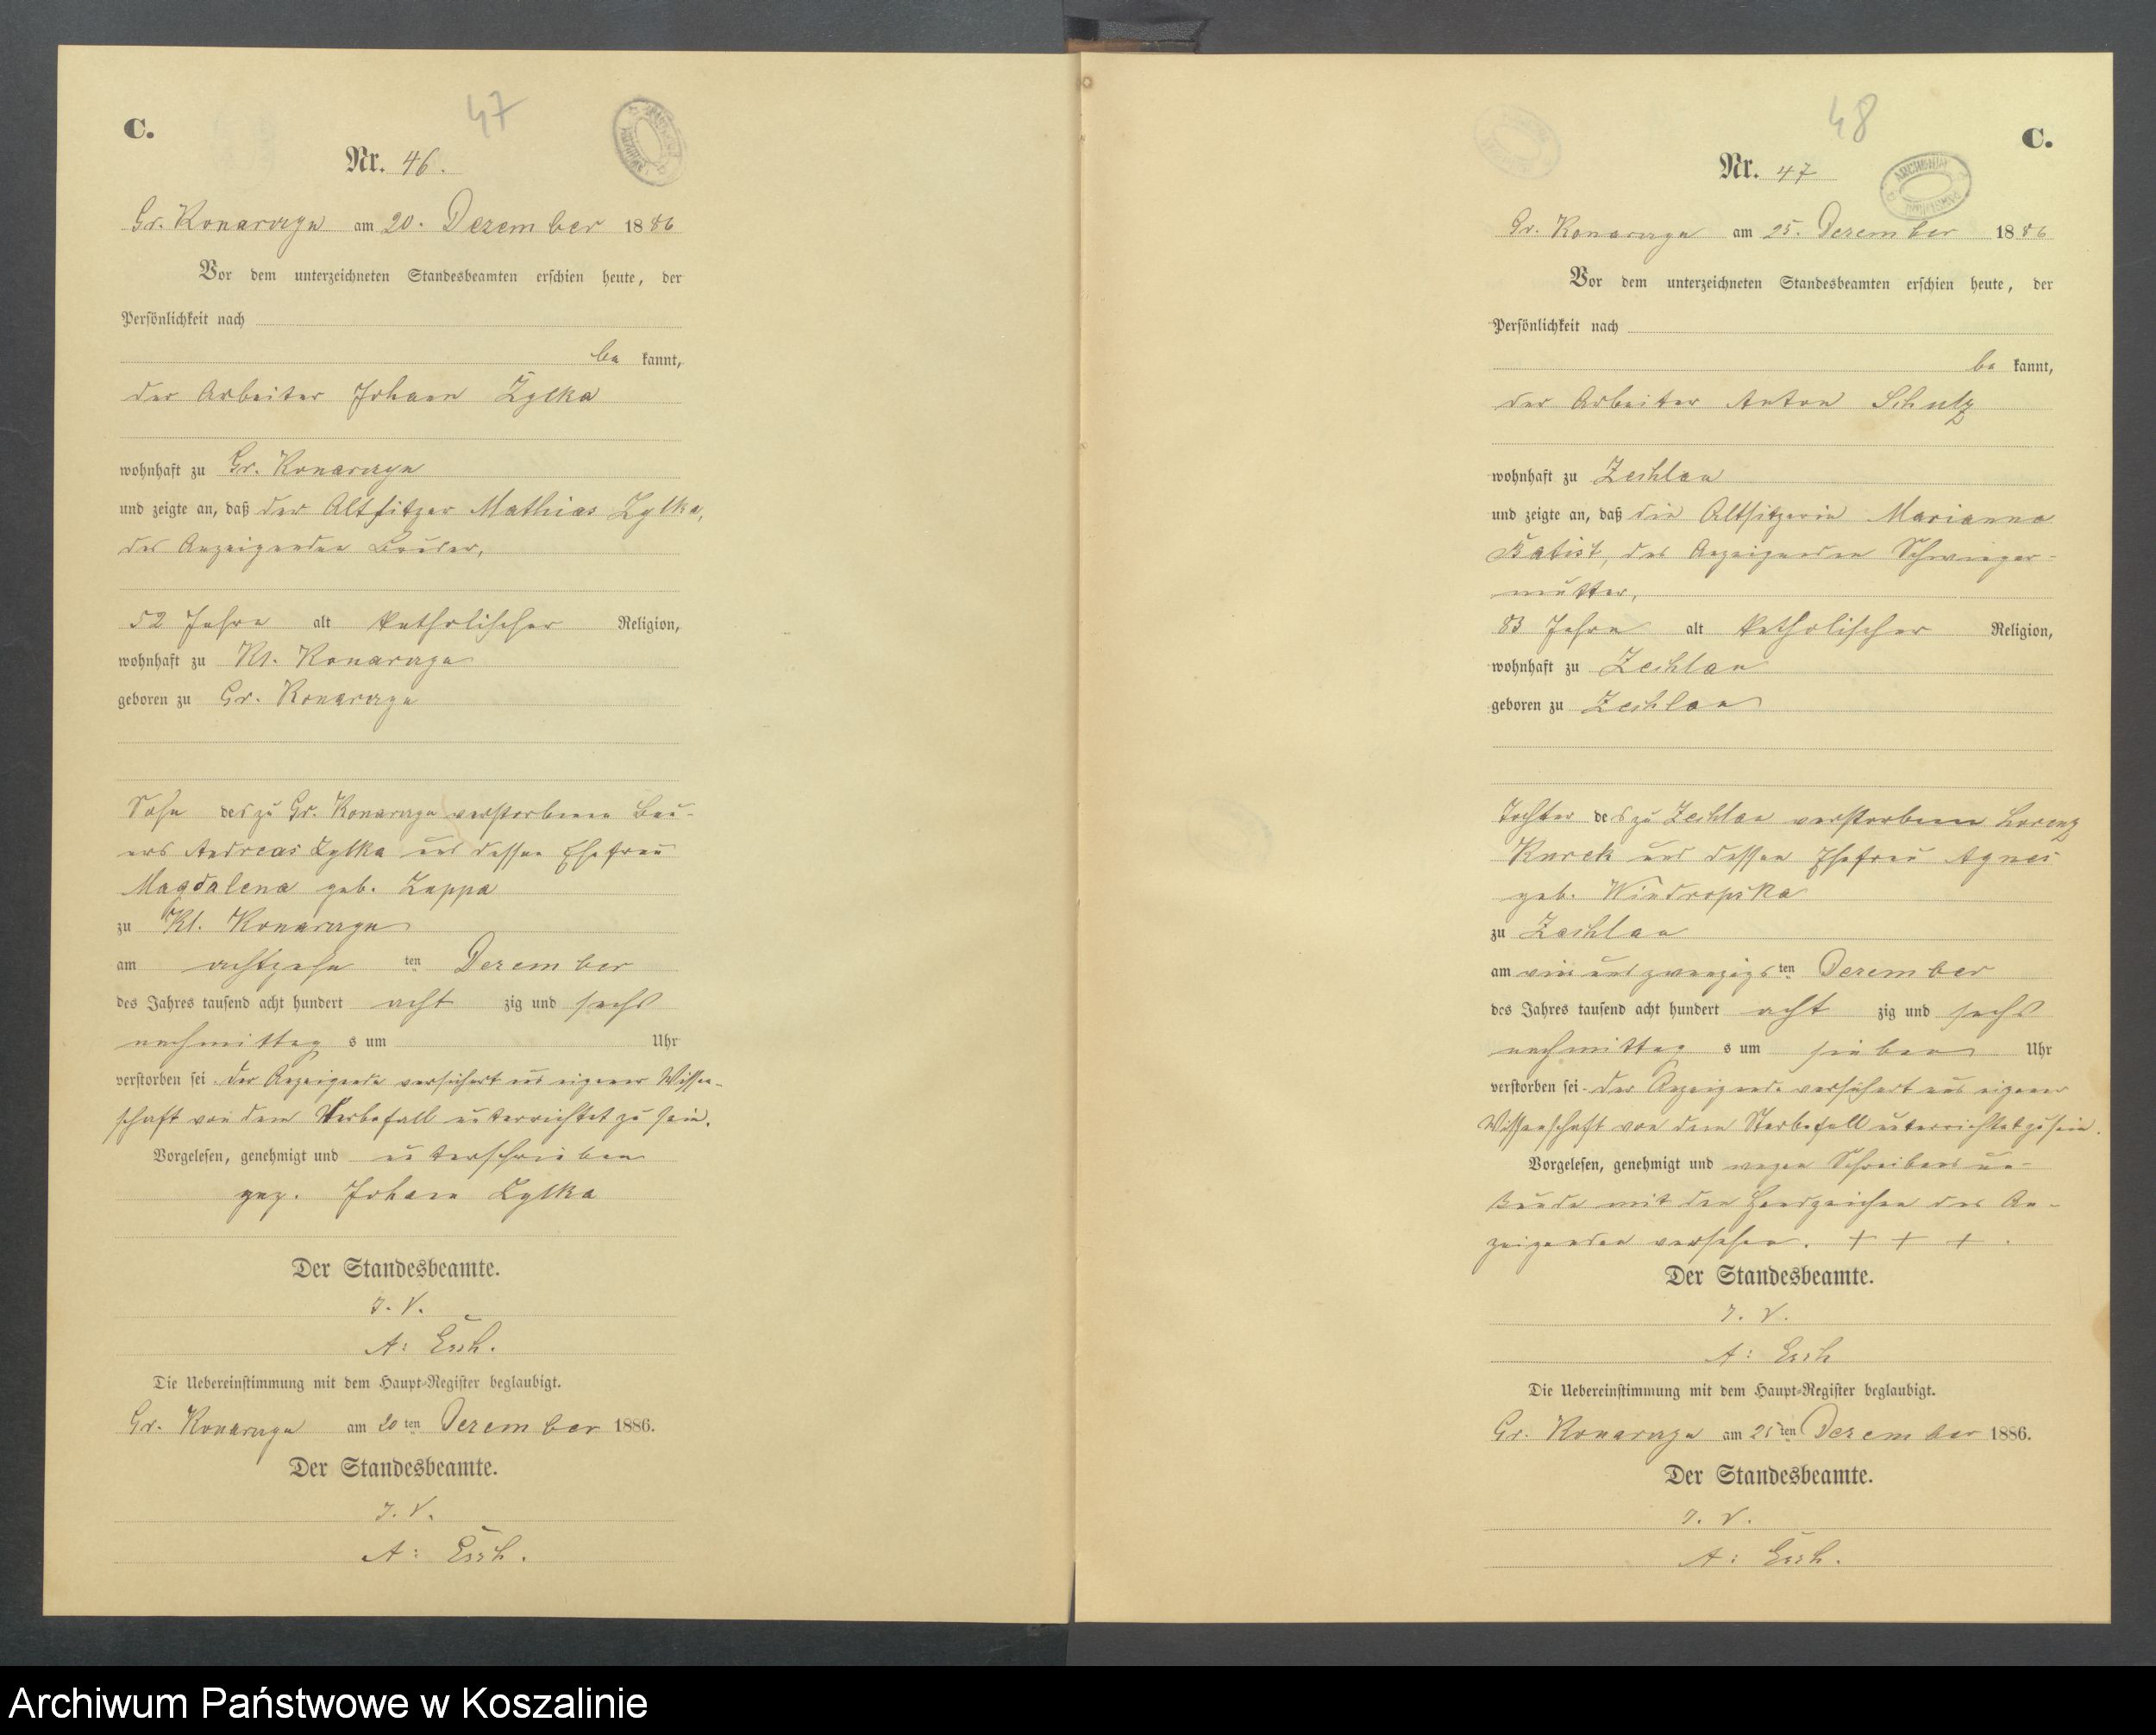 47
C.
Nr. 46.
Gr. Konarzyn am 20. Dezember 1886
Vor dem unterzeichneten Standesbeamten erschien heute, der
Persönlichkeit nach
be kannt,
der Arbeiter Johann Zylka
wohnhaft zu Gr. Konarzyn
und zeigte an, daß der Altsitzer Mathias Zylka,
des Anzeigenden Bruder,
52 Jahre alt katholischer Religion,
wohnhaft zu Kl. Konarzyn
geboren zu Gr. Konarzyn
Sohn des zu Gr. Konarzyn verstorbenen Bau-
ers Andreas Zylka und dessen Ehefrau
Magdalena geb. Zappa
zu Kl. Konarzyn
am achtzehn ten Dezember
des Jahres tausend acht hundert acht zig und sechs
nachmittag s um Uhr
verstorben sei. Der Anzeigende versichert aus eigener Wissen-
schaft von dem Sterbefall unterrichtet zu sein.
Vorgelesen, genehmigt und unterschrieben
gez. Johann Zylka
Der Standesbeamte.
I. V.
A: Esch.
Die Uebereinstimmung mit dem Haupt-Register beglaubigt.
Gr. Konarzyn am 20 ten Dezember 1886.
Der Standesbeamte.
I. V.
A: Esch.
48
C.
Nr. 47
Gr. Konarzyn am 25. Dezember 1886
Vor dem unterzeichneten Standesbeamten erschien heute, der
Persönlichkeit nach
be kannt,
der Arbeiter Anton Schulz
wohnhaft zu Zechlau
und zeigte an, daß die Altsitzerin Marianna
Babist, des Anzeigenden Schwieger-
mutter,
83 Jahre alt katholischer Religion,
wohnhaft zu Zechlau
geboren zu Zechlau
Tochter des zu Zechlau verstorbenen Lorenz
Kurek und dessen Ehefrau Agnes
geb.
zu Zechlau
am ein und zwanzigs ten Dezember
des Jahres tausend acht hundert acht zig und sechs
nachmittag s um sieben Uhr
verstorben sei. Der Anzeigende versichert aus eigener
Wissenschaft von dem Sterbefall unterrichtet zu sein.
Vorgelesen, genehmigt und wegen Schreibens un-
kunde mit den Handzeichen des An-
zeigenden versehen. + + + .
Der Standesbeamte.
I. V.
A: Esch
Die Uebereinstimmung mit dem Haupt-Register beglaubigt.
Gr. Konarzyn am 25 ten Dezember 1886.
Der Standesbeamte.
I. V.
A: Esch.
Archiwum Państwowe w Koszalinie